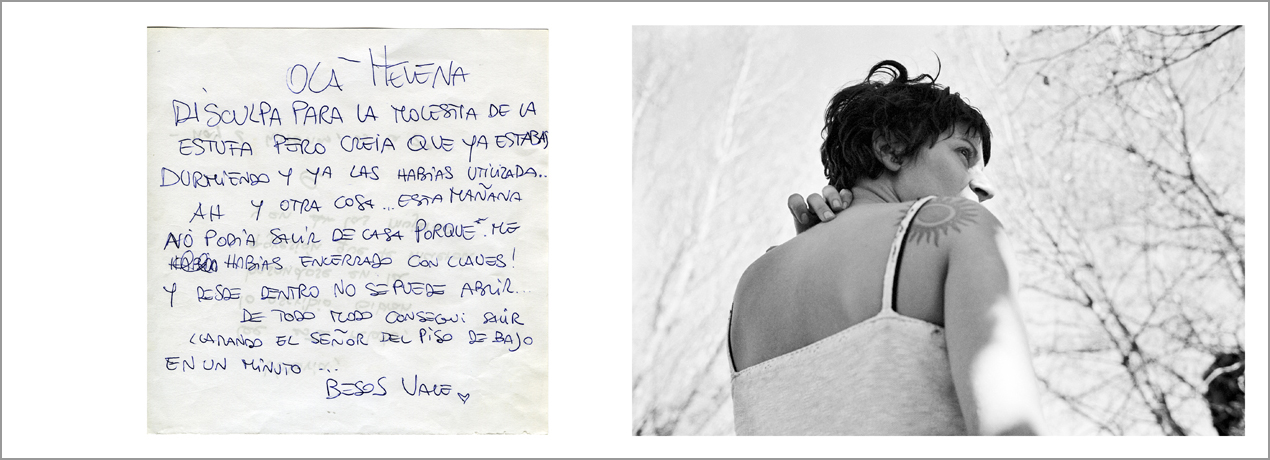 OLA HELENA
DISCULPA PARA LA MOLESTIA DE LA
ESTUFA PERO CREIA QUE YA ESTABAS
DURMIENDO Y YA LAS HABIAS UTILIZADA..
AH Y OTRA COSA... ESTA MAÑANA
NO PODIA SALIR DE CASA PORQUE ME
HABIAS ENCERRADO CON LLAVES!
Y DESDE DENTRO NO SE PUEDE ABRIR...
DE TODO MODO CONSEGUI SALIR
LLAMANDO EL SEÑOR DEL PISO DE BAJO
EN UN MINUTO ...
BESOS VALE